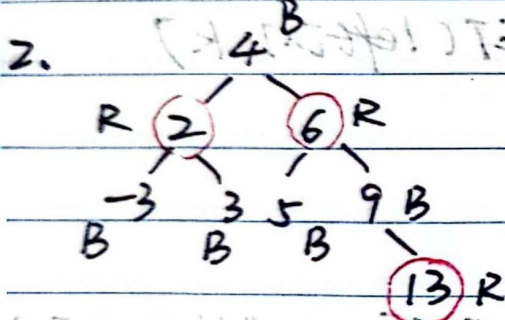 2.
4 B
R 2 6 R
-3 3 5 9 B
B B B
13 R